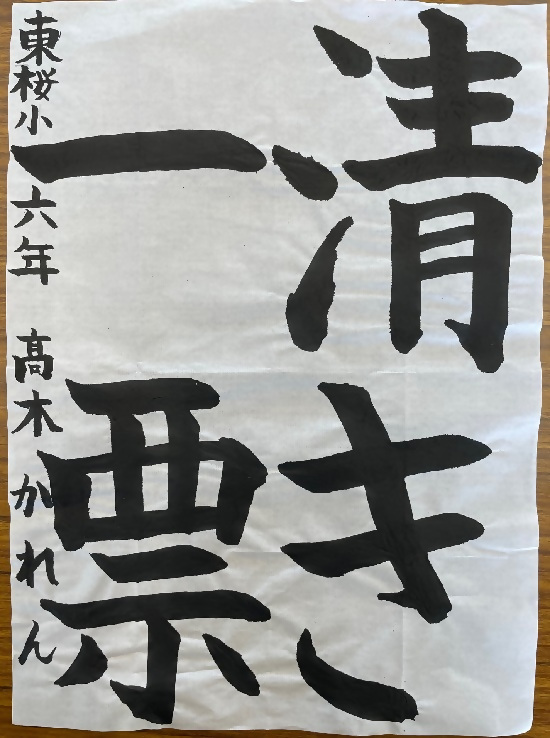 清き
一票
東桜小 六年 高木かれん